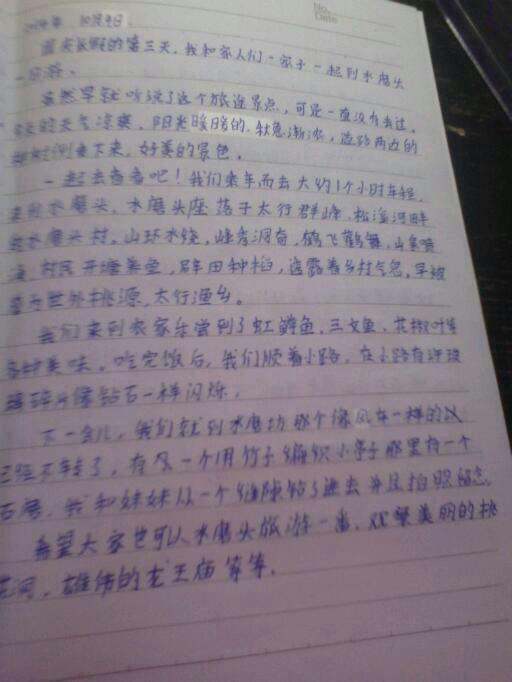 No.
Date
2014年 10月4日
国庆长假的第三天,我和家人们一家子一起到水磨头
一旅游。
虽然早就听说了这个旅途景点,可是一直没有去过,
的天气凉爽,阳光暖暖的,秋意渐浓,道路两边的
下来,好美的景色。
一起去看看吧!我们乘车而去大约1个小时车程,
来到水磨头,水磨头座落于太行群峰,松溪河畔
水磨头村。山环水绕,峰秀洞奇,鹤飞鹳舞,山泉喷
村民开塘养鱼,辟田种稻,透露着乡村气息,早被
誉为世外桃源,太行渔乡。
我们来到农家乐尝到了虹鳟鱼,三文鱼,花椒叶等
各种美味。吃完饭后,我们顺着小路,在小路有许玻
璃碎片像钻石一样闪烁。
不一会儿,我们就到水磨坊那个像风车一样的以
已经不转了,有另一个用竹子编织小亭子那里有一个
石磨,我和妹妹从一个缝隙钻了进去并且拍照留念
希望大家也可以水磨头旅游一番,观望美丽的桃
花河,雄伟的龙王庙等等.